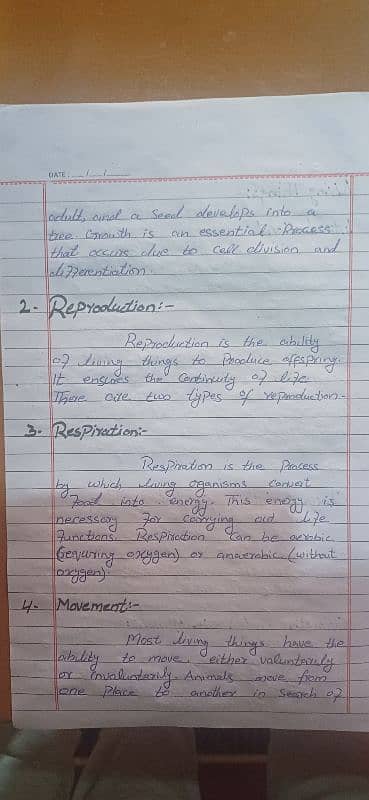 DATE: __/__/__
adult, and a seed develops into a
tree. Growth is an essential Process
that occurs due to cell division and
differentiation.
2- Reproduction:-
Reproduction is the ability
of living things to Produce ofsspring.
It ensures the Continuity of life
There are two types of reproduction-
3- Respiration:-
Respiration is the Process
by which living organisms Convert
food into energy. This energy is
necessary for carrying out life
functions. Respiration Can be aerobic
(requring oxygen) or anaerobic (without
oxygen).
4- Movement:-
Most living things have the
ability to move, either voluntarily
or involuntarily. Animals move from
one Place to another in search of